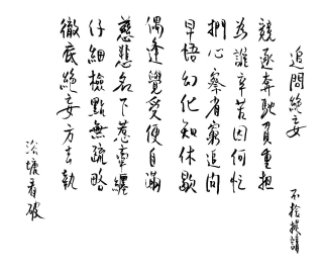 追問絕妄
不捨提請
競逐奔馳負重担
為誰辛苦因何忙
捫心察省窮追問
早悟幻化知休歇
偶逢覺受便自滿
慈悲名下惹牽纏
仔細檢點無疏略
徹底絕妄方去執
看破